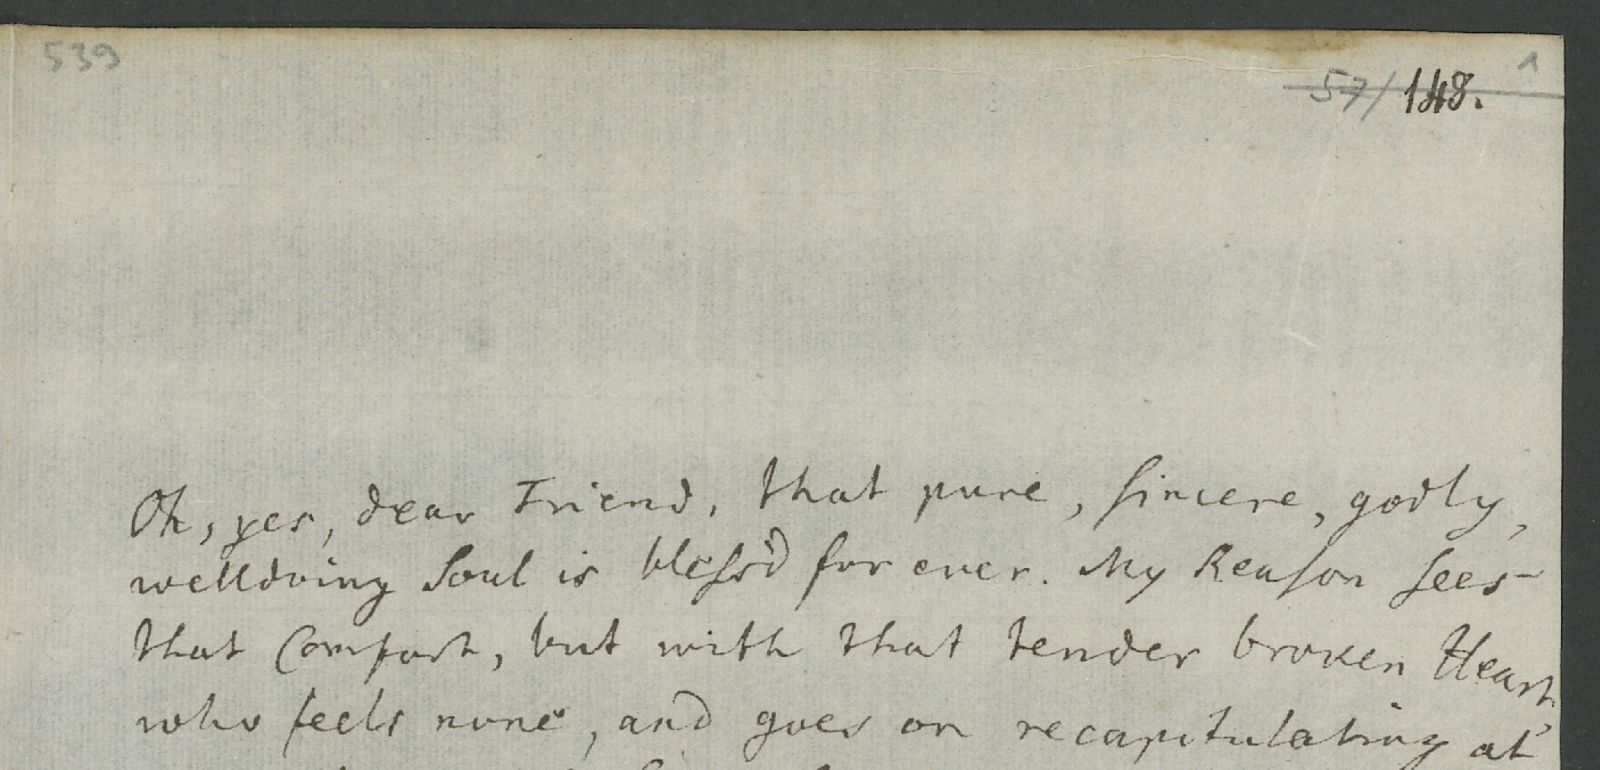 539
57/ 148. 1
Oh, yes, dear Friend, that pure, sincere, godly,
welldoing Soul is bless'd for ever. My Reason sees
that Comfort, but with that tender broken Heart,
who feels none, and goes on recapitulating at